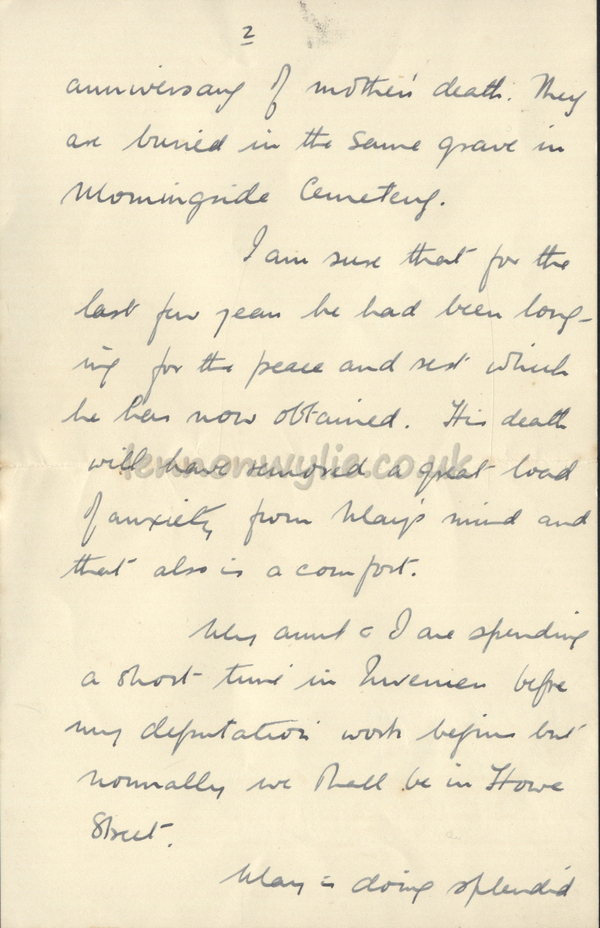 2
anniversary of mother's death. They
are buried in the same grave in
Morningside Cemetery.
I am sure that for the
last few years he had been long-
ing for the peace and rest which
he has now obtained. His death
will have removed a great load
lennonwylie.co.uk
of anxiety from May's mind and
that also is a comfort.
My aunt & I are spending
a short time in before
my deputation work begins but
normally we shall be in Howe
Street.
May is doing splendid